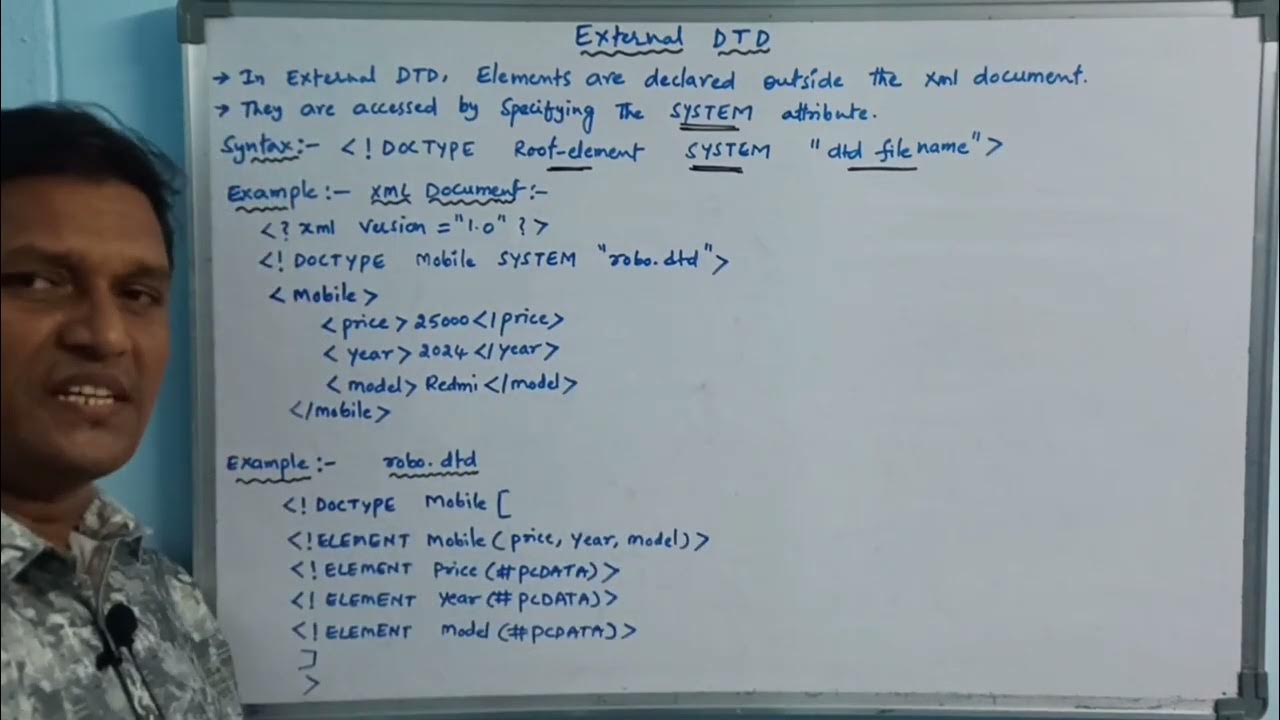 External DTD
→ In External DTD, Elements are declared outside the xml document.
→ They are accessed by specifying the SYSTEM attribute.
Syntax:- <! DOCTYPE Root-element SYSTEM "dtd file name">
Example:- xml Document:-
<? xml version = "1.0" ?>
<! DOCTYPE Mobile SYSTEM "robo.dtd">
<mobile>
<price> 25000 </price>
<year> 2024 </year>
<model> Redmi </model>
</mobile>
Example:- robo.dtd
<! DOCTYPE Mobile [
<!ELEMENT Mobile (price, year, model)>
<! ELEMENT Price (#PCDATA)>
<! ELEMENT year (# PCDATA)>
<! ELEMENT model (#PCDATA)>
]
>